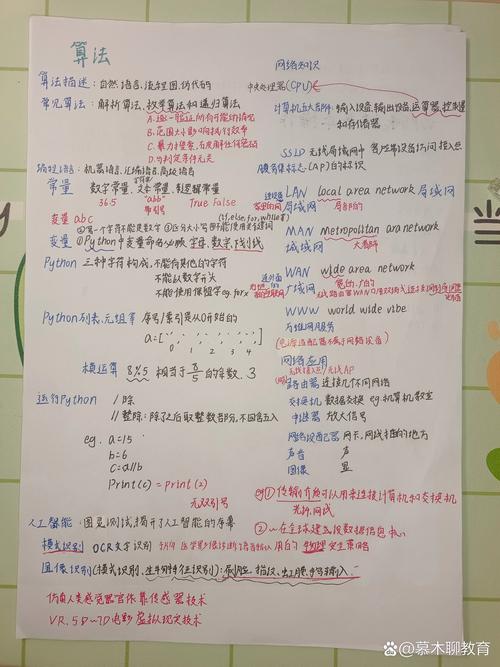 算法
算法描述:自然语言,流程图,伪代码
常见算法:解析算法,枚举算法和递归算法
A.逐一验证所有可能的情况
B.范围大小影响执行效率
C.暴力搜索,不放过任何
D.与判定条件无关
编程语言:机器语言,汇编语言,高级语言
常量 数字常量,文本常量,逻辑常量
365 "abb" True False
带引号
变量 abc (if,else,for,while等)
①第一个字符不能是数字 ②区分大小写 ③不能使用关键词
变量 ①Python中变量命名必须 字母,数字,下划线
Python 三种字符构成,不能有其他的字符
不能以数字开头
不能使用保留字eg.for x
Python列表,元组等 序号/索引是从0开始的
a=[ , , , , ]
0 1 2 3 4
模运算 8%5 相当于8/5的余数,3
运行Python / 除
// 整除:除了之后取整数部分,不四舍五入
eg. a=15
b=6
c=a//b
Print(c)=print(2)
无双引号
人工智能:图灵测试,揭开了人工智能的序幕
模式识别 OCR文字识别
图像识别(模式识别,生物特征识别):刷脸,指纹,虹膜,手写输入
仿真人类感觉器官依靠传感器技术
VR,5D~7D电影虚拟现实技术
网络知识
中央处理器(CPU)
计算机五大部件:输入设备,输出设备,运算器,控制器
和存储器
SSID 无线局域网中 客户端设备访问接入点
(AP)的标识
LAN local area network 局域网
局域网 局部的
MAN Metropolitan ara network
城域网 大都市
WAN wide area network
广域网 宽的,广的
WWW world wide vibe
万维网服务
网络应用
无线接入点/无线AP
路由器 连接几个不同网络
交换机 数据交换 eg.机算机教室
中继器 放大信号
网络适配器 网卡,网线插的地方
声音 声
图像 显
eg①传输介质可以用来连接计算机和交换机
光纤,网线